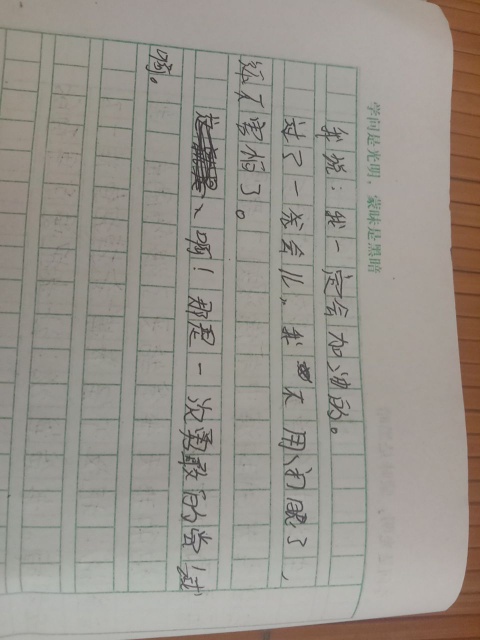 学问是光明，蒙昧是黑暗
我说：我一定会加油的。
过了一会会儿，我不用
还不害怕了。
啊！那是一次勇敢的尝试
啊。